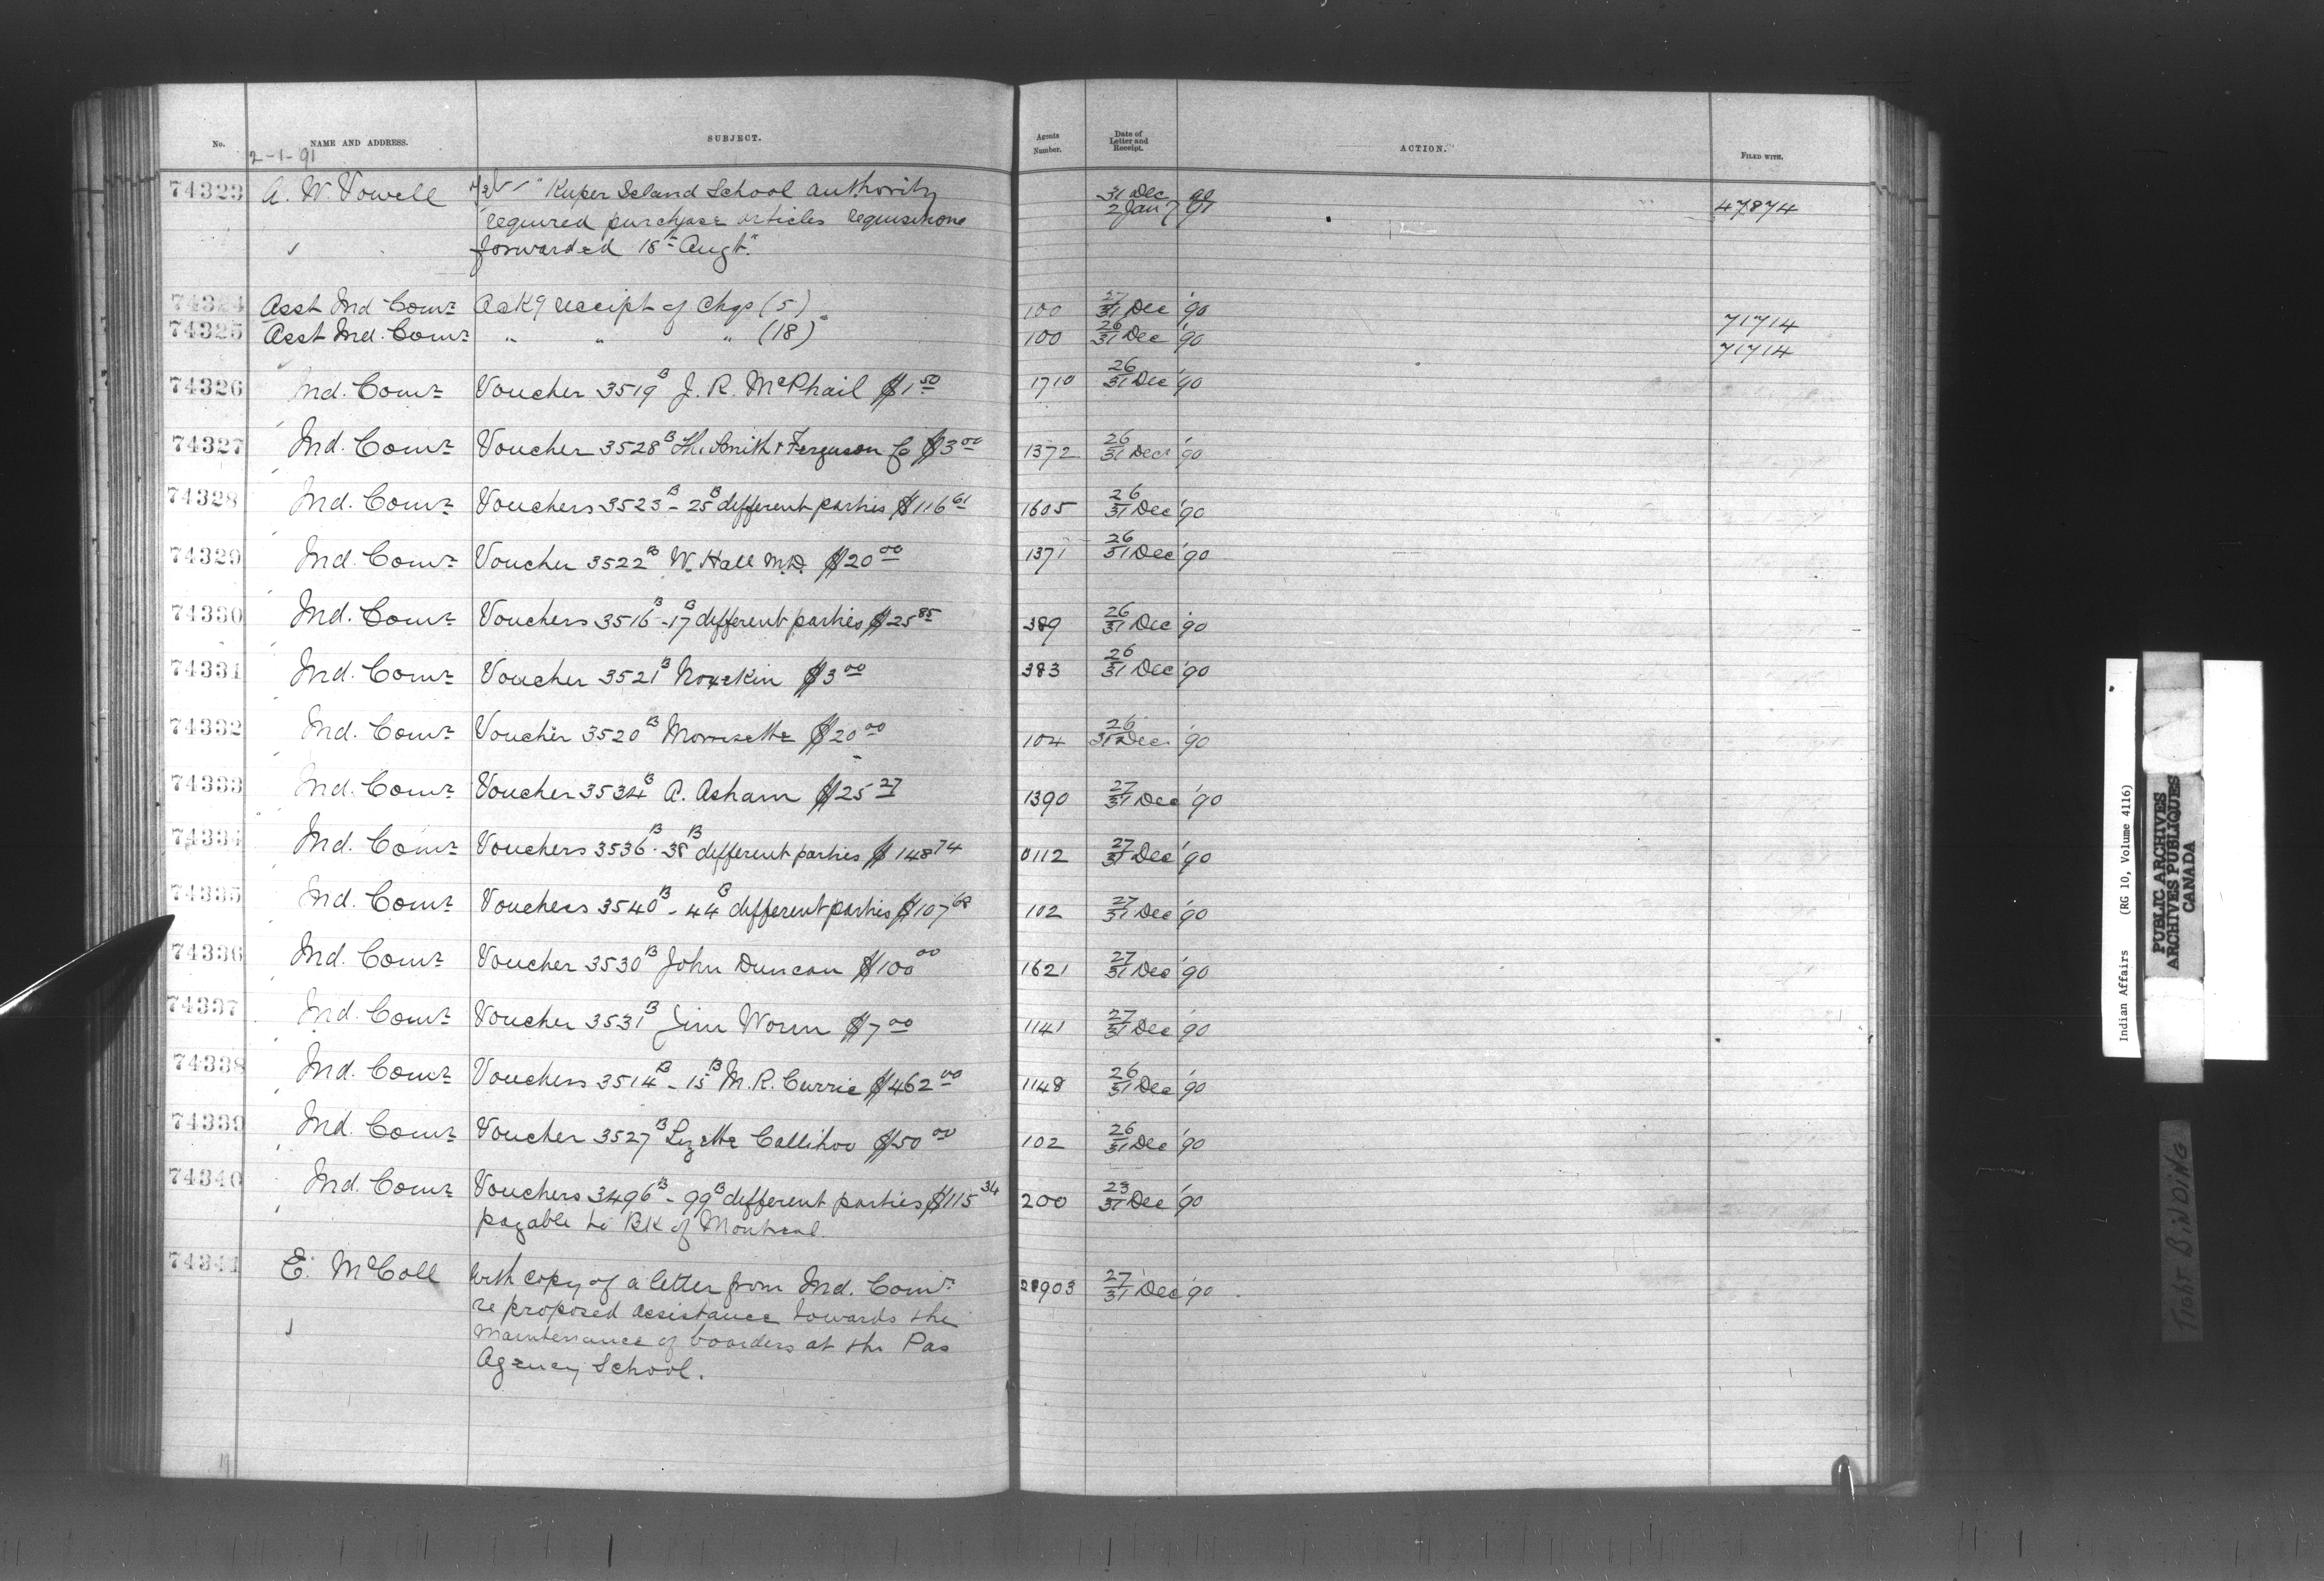 No. NAME AND ADDRESS. SUBJECT. Agents Number. Date of Letter and Receipt. ACTION. FILED WITH.
2-1-91
74323 A. W. Vowell "Kuper Island School authority 31 Dec 90 47874
required purchase articles requisitions 2 Jan 91
forwarded 18th Augt."
74324 Asst Ind Comr Ackg receipt of Chqs (5) 100 27/31 Dec '90 71714
74325 Asst Ind. Comr " " " (18) 100 26/31 Dec '90 71714
74326 Ind. Comr Voucher 3519B J. R. McPhail $1 50 1710 26/31 Dec '90
74327 Ind. Comr Voucher 3528B The Smith & Ferguson Co $3 00 1372 26/31 Dec '90
74328 Ind. Comr Vouchers 3523B - 25B different parties $116 61 1605 26/31 Dec '90
74329 Ind. Comr Voucher 3522B W. Hall M.D. $20 00 1371 26/31 Dec '90
74330 Ind. Comr Vouchers 3516B - 17B different parties $25 85 389 26/31 Dec '90
74331 Ind. Comr Voucher 3521B $3 00 383 26/31 Dec '90
74332 Ind. Comr Voucher 3520B Morrisette $20 00 104 26/31 Dec. '90
74333 Ind. Comr Voucher 3534B A. Asham $25 27 1390 27/31 Dec '90
74334 Ind. Comr Vouchers 3536B - 38B different parties $148 74 0112 27/31 Dec '90
74335 Ind. Comr Vouchers 3540B - 44B different parties $107 68 102 27/31 Dec '90
74336 Ind. Comr Voucher 3530B John Duncan $100 00 1621 27/31 Dec '90
74337 Ind. Comr Voucher 3531B Jim Worm $7 00 1141 27/31 Dec '90
74338 Ind. Comr Vouchers 3514B - 15B M. R. Currie $462 00 1148 26/31 Dec '90
74339 Ind. Comr Voucher 3527B Lizette Callihoo $50 00 102 26/31 Dec '90
74340 Ind. Comr Vouchers 3496B - 99B different parties $115 34 200 23/31 Dec '90
payable to BK of Montreal.
74341 E. McColl With copy of a letter from Ind. Comr 28903 27/31 Dec '90
re proposed assistance towards the
maintenance of boarders at the Pas
Agency School.
Indian Affairs (RG 10, Volume 4116)
PUBLIC ARCHIVES
ARCHIVES PUBLIQUES
CANADA
TIGHT BINDING